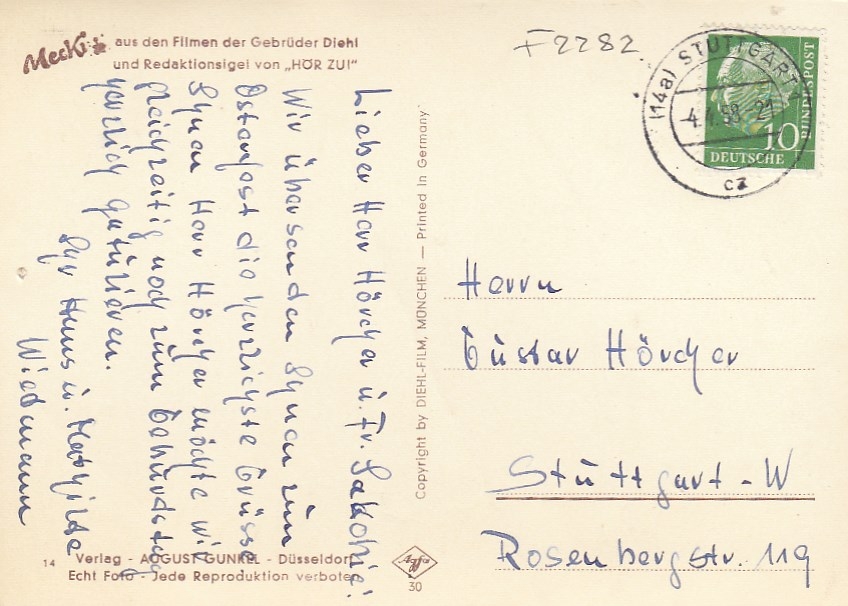 Mecki aus den Filmen der Gebrüder Diehl
und Redaktionsigel von „HÖR ZU!"
F2282
(14a) STUTTGART
4.4.58-21
cz
10
DEUTSCHE
BUNDESPOST
Lieber Herr Hörcher u. Fr. Sakohie!
Wir übersenden Ihnen zum
Osterfest die herzlichste Grüsse
Ihnen Herr Hörcher möchte wir
gleichzeitig noch zum Geburtstag
herzlich gratulieren.
Ihr Hans u. Mathilde
Wiedmann
Copyright by DIEHL-FILM, MÜNCHEN — Printed in Germany
Herrn
Gustav Hörcher
Stuttgart-W
Rosenbergstr. 119
14 Verlag - AUGUST GUNKEL - Düsseldorf
Echt Foto - Jede Reproduktion verboten
Agfa
30